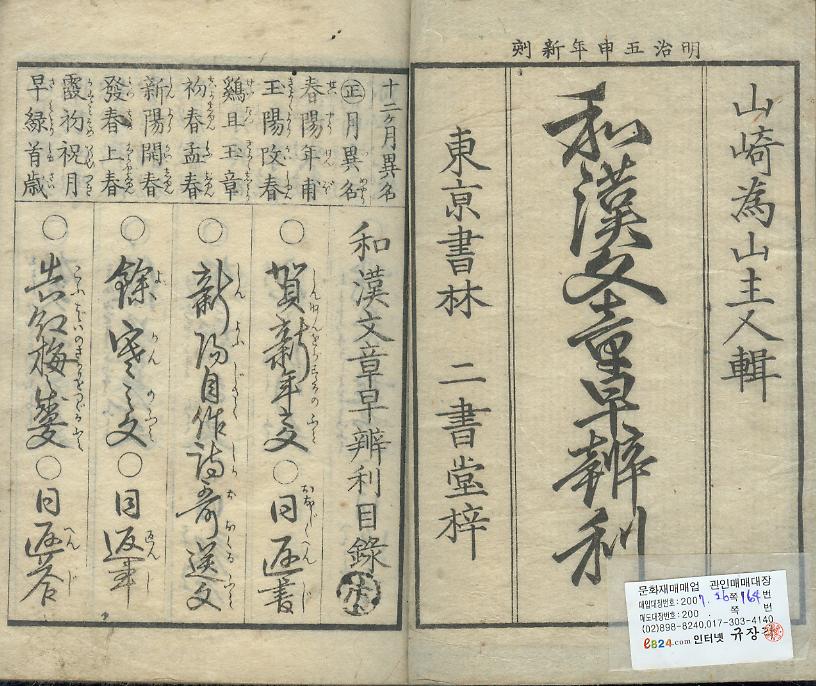 明治五申年新刻
山崎為山主人輯
和漢文章早辨利
東京書林 二書堂梓
문화재매매업 관인매매대장
매입대장번호: 2007. 26쪽 164번
매도대장번호: 200 . 쪽 번
(02)898-8240,017-303-4140
eB24.com 인터넷 규장각
十二ヶ月異名
㊣月異名
春陽 年甫
王陽 改春
鷄旦 王章
初春 孟春
新陽 開春
發春 上春
霞初 祝月
早緑 首歳
和漢文章早辨利目錄
○賀新年文 ○同返書
○新陽自作詩歌送文
○餘寒之文 ○同返事
○告紅梅𛂞 ○同返答